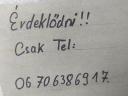 Érdeklődni!!
Csak Tel:
06706386917